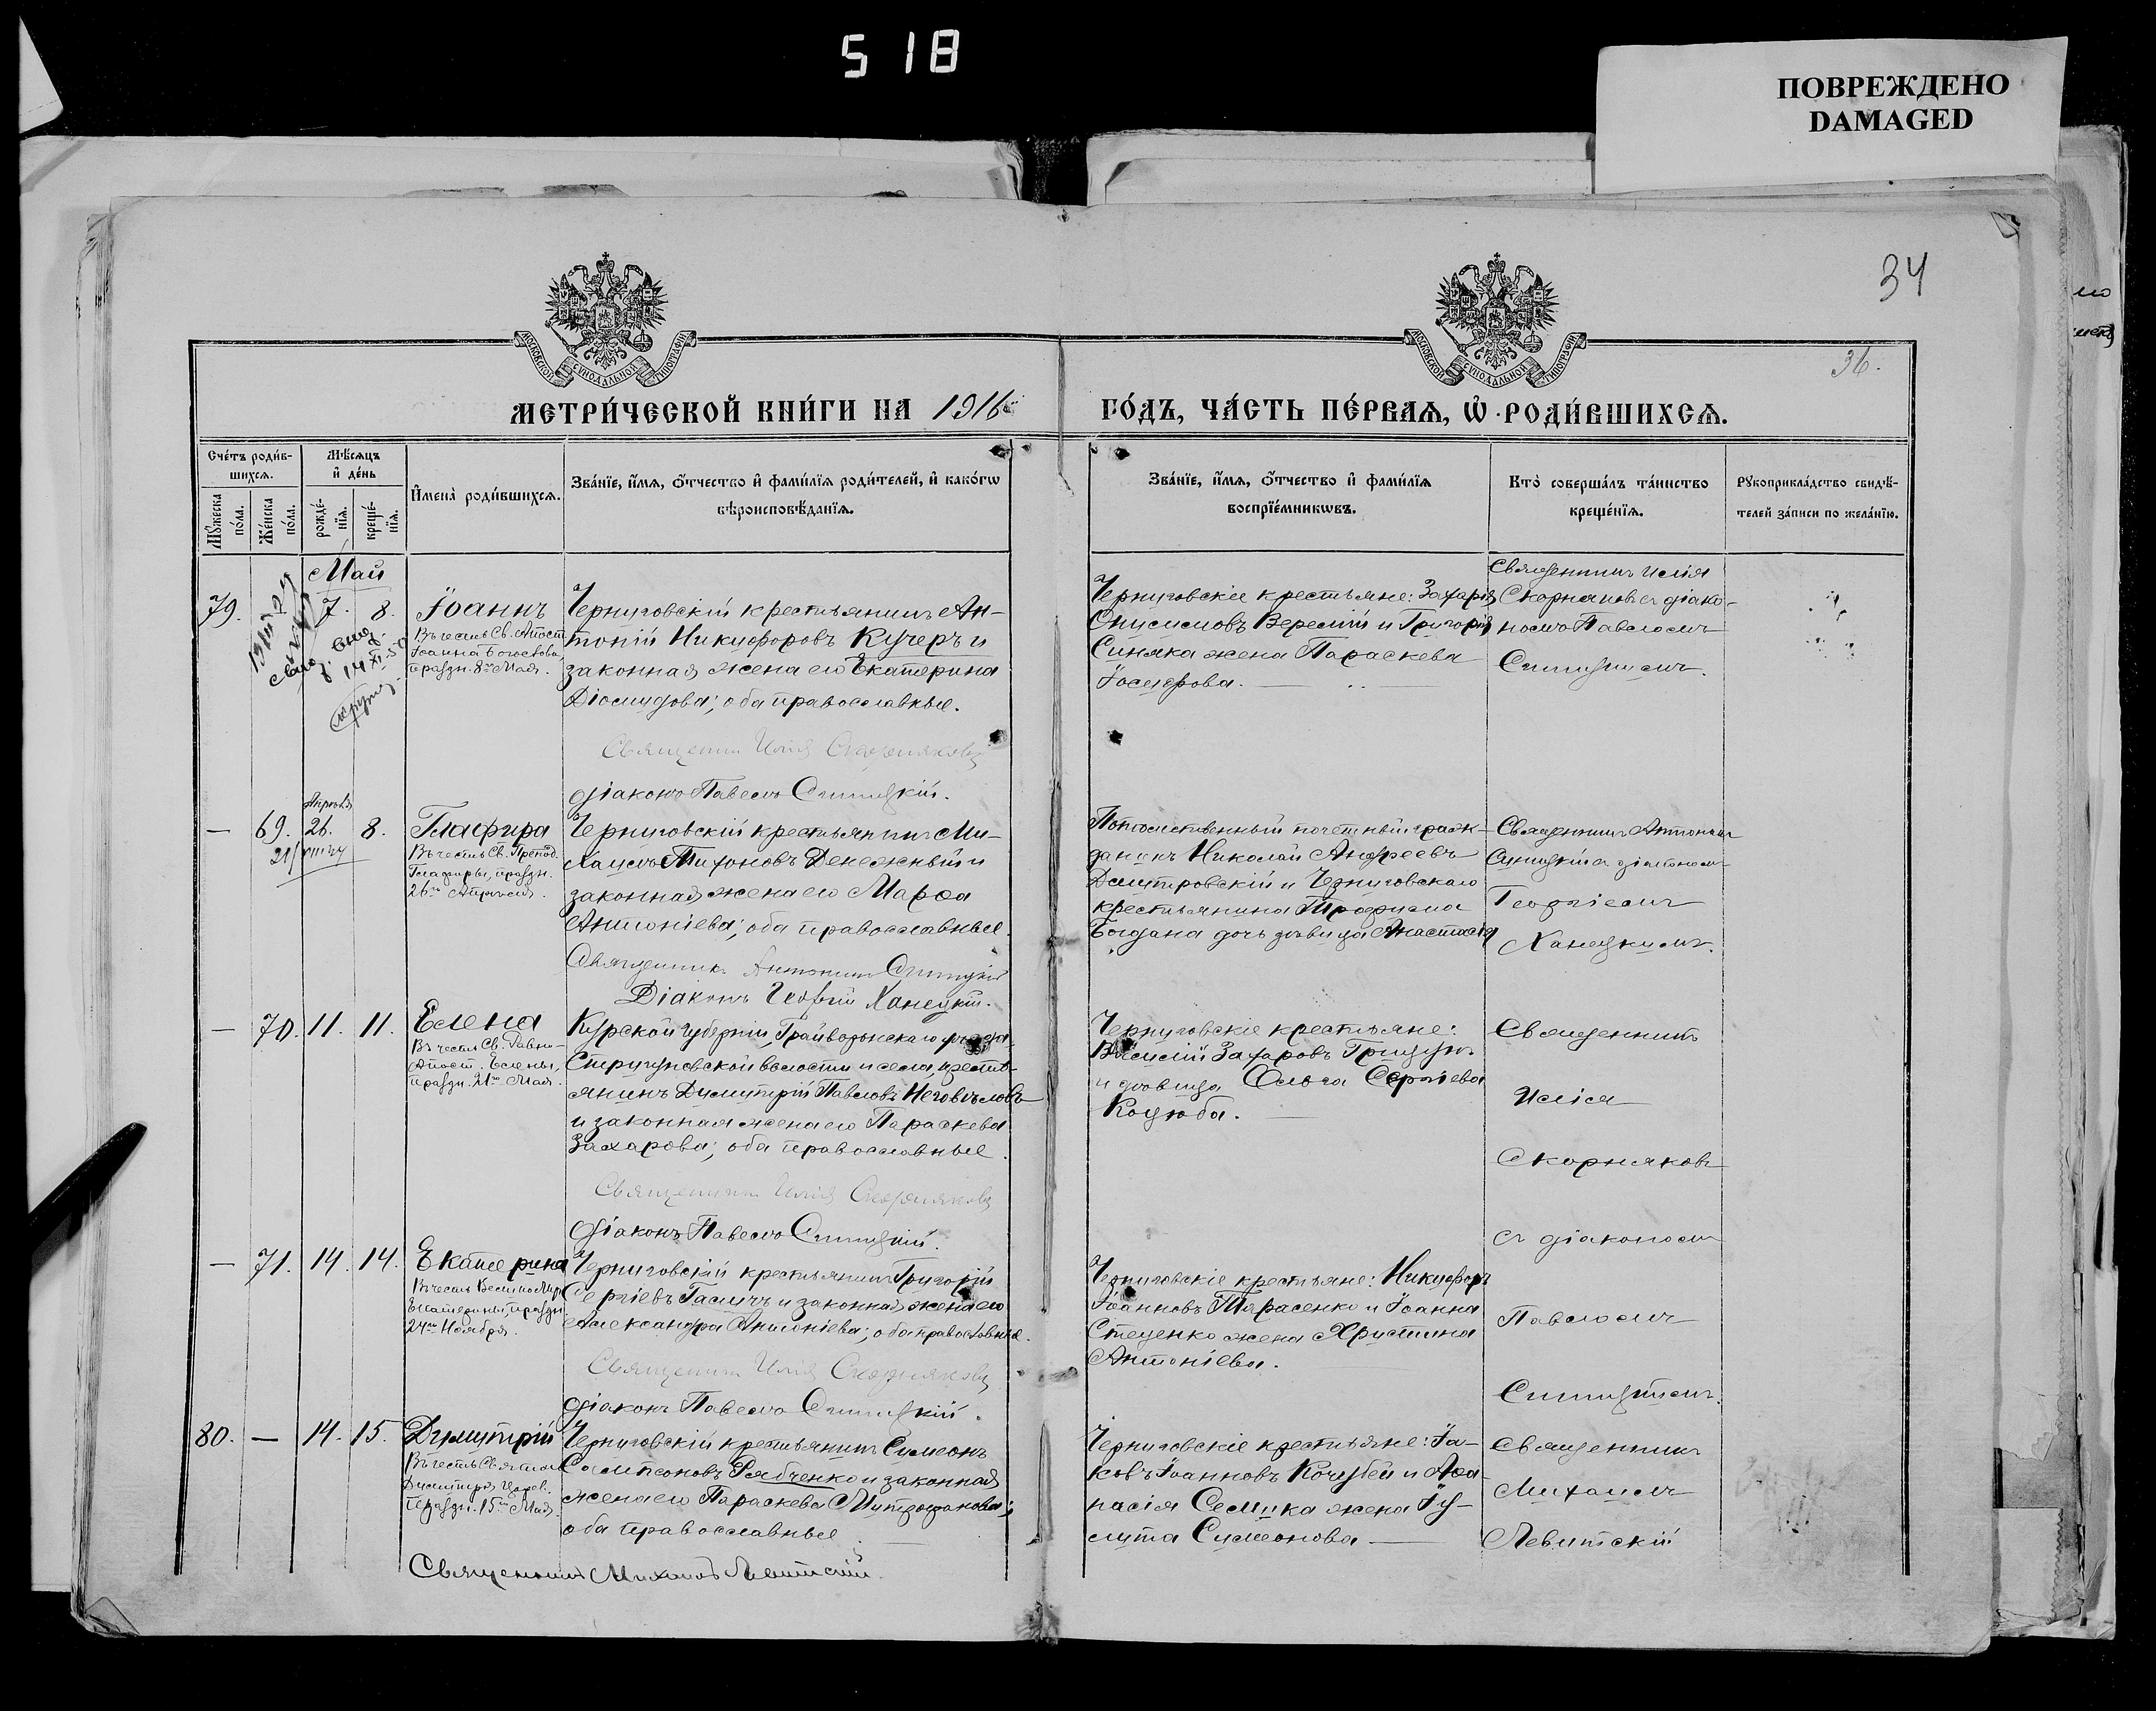 518
ПОВРЕЖДЕНО
DAMAGED
34
36.
МОСКОВСКОЙ СѴНОДАЛЬНОЙ ТИПОГРАФІИ
МОСКОВСКОЙ СѴНОДАЛЬНОЙ ТИПОГРАФІИ
МЕТРИ́ЧЕСКОЙ КНИ́ГИ НА 1916
ГО́ДЪ, ЧА́СТЬ ПЕ́РВАѦ, Ѡ РОДИ́ВШИХСѦ.
Сче́тъ роди́в-
шихсѧ.
Мѣ́сѧцъ
и де́нь
Мꙋ́жеска по́ла.
Же́нска по́ла.
рожде́-
нїѧ.
креще́-
нїѧ.
Имена̀ роди́вшихсѧ.
Зва́нїе, и́мѧ, ѻ́тчество и фами́лїѧ роди́телей, и како́гѡ
вѣроисповѣ́данїѧ.
Зва́нїе, и́мѧ, ѻ́тчество и фами́лїѧ
воспрїе́мникѡвъ.
Кто̀ соверша́лъ та́инство
креще́нїѧ.
Рꙋкоприкла́дство свидѣ́-
телей за́писи по жела́нїю.
Май
79.
7. 8.
Іоаннъ
Въ честь Св. Апост.
Іоанна Богослова
праздн. 8го Мая.
Черниговскій крестьянинъ Ан-
тоній Никифоровъ Кучеръ и
законная жена его Екатерина
Діомидова; оба православные.
Священник Илія Скорняковъ
діаконъ Павелъ Спицкій.
Черниговскіе крестьяне: Захарія
Онисимовъ Веремій и Григорія
Синяка жена Параскева
Іосифова.
Священникъ Илія
Скорняковъ съ діако-
номъ Павломъ
— 69. 26. 8.
Апрѣль
Глафира
Въ честь Св. Препод.
Глафиры, праздн.
26го Апрѣля.
Черниговскій крестьянинъ Ми-
хаилъ Тихоновъ Денежный и
законная жена его Марѳа
Антоніева; оба православные.
Священникъ Антонин
Діаконъ Георгій Ханецкій.
Потомственный почетный граж-
данинъ Николай Андреевъ
Дмитровскій и Черниговскаго
крестьянина Трофима
Богдана дочь дѣвица Анастасія
Священникъ Антонин
съ діакономъ
Георгіемъ
Ханецкимъ.
— 70. 11. 11.
Елена
Въ честь Св. Равно-
Апост. Елены,
праздн. 21го Мая.
Курской губерніи, Грайворонскаго уѣзда
Стригуновской волости и села, кресть-
янинъ Димитрій Павловъ
и законная жена его Параскева
Захарова; оба православные.
Священник Илія Скорняковъ
діаконъ Павелъ Спицкій.
Черниговскіе крестьяне:
Василій Захаровъ Грицунъ
и дѣвица Ольга Сергіева
Коцюба.
Священникъ
Илія
Скорняковъ
съ діакономъ
Павломъ
— 71. 14. 14.
Екатерина
Въ честь Великомуч.
Екатерины, праздн.
24го Ноября.
Черниговскій крестьянинъ Григорій
Сергіевъ Гасичъ и законная жена его
Александра Антоніева; оба православные.
Священник Илія Скорняковъ
діаконъ Павелъ Спицкій.
Черниговскіе крестьяне: Никифоръ
Іоанновъ Тарасенко и Іоанна
Стеценко жена Христина
Антоніева.
80. — 14. 15.
Димитрій
Димитрія Царев.
праздн. 15го Мая.
Черниговскій крестьянинъ Симеонъ
Сампсоновъ Рябченко и законная
жена его Параскева Митрофанова;
оба православные
Священникъ Михаилъ Левитскій.
Черниговскіе крестьяне: Іа-
ковъ Іоанновъ Кочубей и Аѳа-
насія Семика жена Іу-
лита Симеонова
Священникъ
Михаилъ
Левитскій